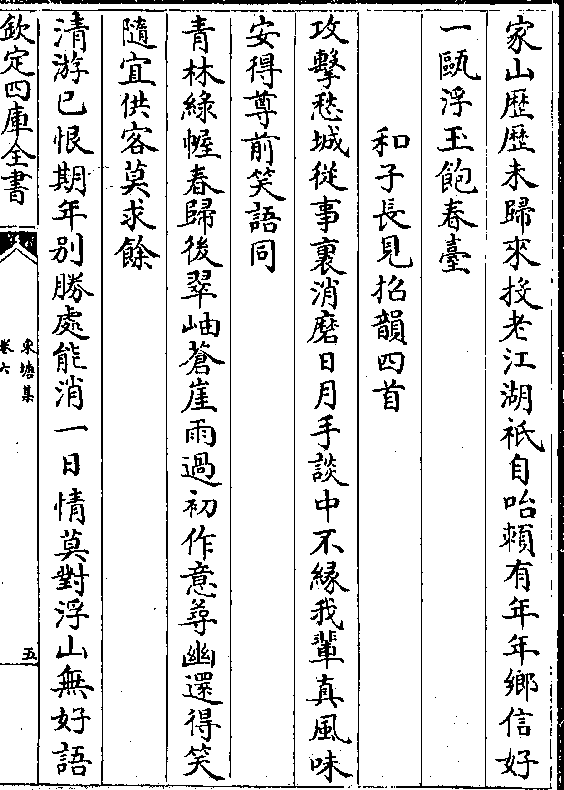 家山歴歴未歸來投老江湖祇自咍賴有年年鄉信好
一甌浮玉飽春臺
和子長見招韻四首
攻擊愁城從事裏消磨日月手談中不縁我輩真風味
安得尊前笑語同
青林綠幄春歸後翠岫蒼崖雨過初作意尋幽還得笑
隨宜供客莫求餘
清游已恨期年別勝處能消一日情莫對浮山無好語
欽定四庫全書
東塘集
卷六
五